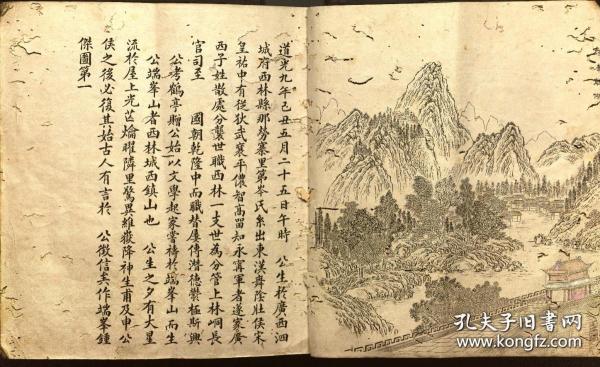 道光九年己丑五月二十五日午時　公生於廣西泗
城府西林縣那勞寨里第岑氏系出東漢舞陰壯侯宋
皇祐中有從狄武襄平儂智高留知永甯軍者遂家廣
西子姓散處分襲世職西林一支世為分管上林峒長
官司至　國朝乾隆中而職替屢傳潛德鬱極斯興
公考鶴亭贈公始以文學起家嘗禱於端峯山而生
公端峯山者西林城西鎮山也　公生之夕有大星
流於屋上光芒爚曜隣里驚異維嶽降神生甫及申公
侯之後必復其始古人有言於　公徵信矣作端峯鍾
傑圖第一
孔夫子旧书网
www.kongfz.com